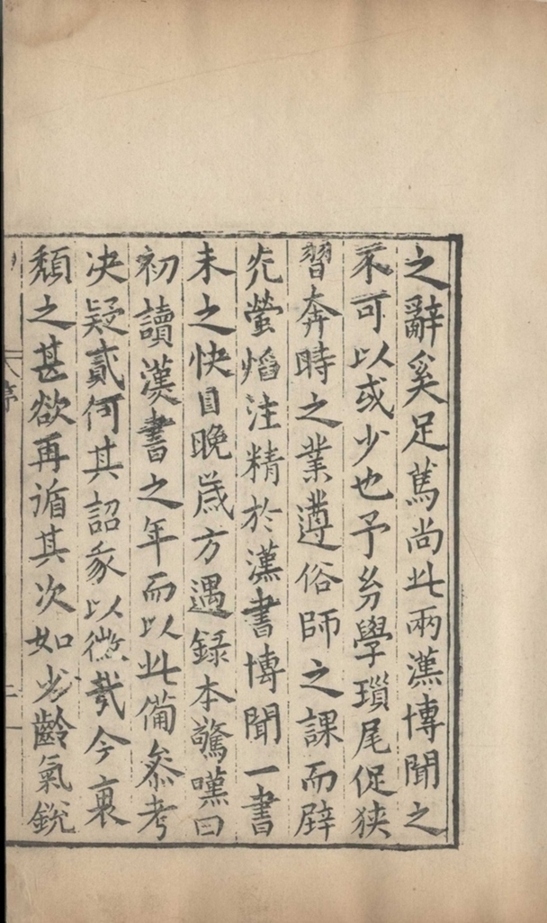 之辭奚足為尚此兩漢博聞之
不可以或少也予㓜學瑣尾促狹
習奔時之業遵俗師之課而辟
光螢熖注精於漢書博聞一書
未之快目晚歲方遇録本驚嘆曰
初讀漢書之年而以此備叅考
决疑貳何其詔我以微哉今裏
頽之甚欲再循其次如少齡氣銳
序